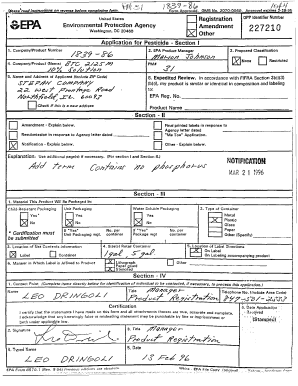 Please read instructions on reverse before completing form.
1839-86
EPA
United States
Environmental Protection Agency
Washington, DC 20460
Registration
Amendment
Other
OPP Identifier Number
227210
Application for Pesticide - Section I
1. Company/Product Number
1839-86
2. EPA Product Manager
Marion Johnson
3. Proposed Classification
None
Restricted
4. Company/Product (Name)
BTC 2125M
10% Solution
PM#
31
5. Name and Address of Applicant (Include ZIP Code)
STEPAN COMPANY
22 West Frontage Road
Northfield IL 60093
Check if this is a new address
6. Expedited Review. In accordance with FIFRA Section 3(c)(3)
(b)(i), my product is similar or identical in composition and labeling
to:
EPA Reg. No.
Product Name
Section - II
Amendment - Explain below.
Resubmission in response to Agency letter dated
Notification - Explain below.
Final printed labels in response to
Agency letter dated
"Me Too" Application.
Other - Explain below.
Explanation: Use additional page(s) if necessary. (For section I and Section II.)
Add Term Contains no phosphorus
NOTIFICATION
MAR 21 1996
Section - III
1. Material This Product Will Be Packaged In:
Child-Resistant Packaging
Yes
No
* Certification must
be submitted
Unit Packaging
Yes
No
If "Yes"
Unit Packaging wgt.
No. per
container
Water Soluble Packaging
Yes
No
If "Yes"
Package wgt
No. per
container
2. Type of Container
Metal
Plastic
Glass
Paper
Other (Specify)
3. Location of Net Contents Information
Label
Container
4. Size(s) Retail Container
1 gal, 5 gal
5. Location of Label Directions
On Label
On Labeling accompanying product
6. Manner in Which Label is Affixed to Product
Lithograph
Paper glued
Stenciled
Other
Section - IV
1. Contact Point
Name
LEO DRINGOLI
Title
Manager
Product Registration
Telephone No. (Include Area Code)
Certification
I certify that the statements I have made on this form and all attachments thereto are true, accurate and complete.
I acknowledge that any knowingly false or misleading statement may be punishable by fine or imprisonment or
both under applicable law.
6. Date Application
Received
(Stamped)
2. Signature
3. Title
Manager
Product Registration
4. Typed Name
LEO DRINGOLI
5. Date
13 Feb 96